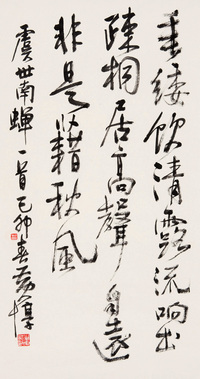 垂緌飲清露流响出
疎桐居高聲自遠
非是藉秋風
虞世南蟬一首己卯春黄惇